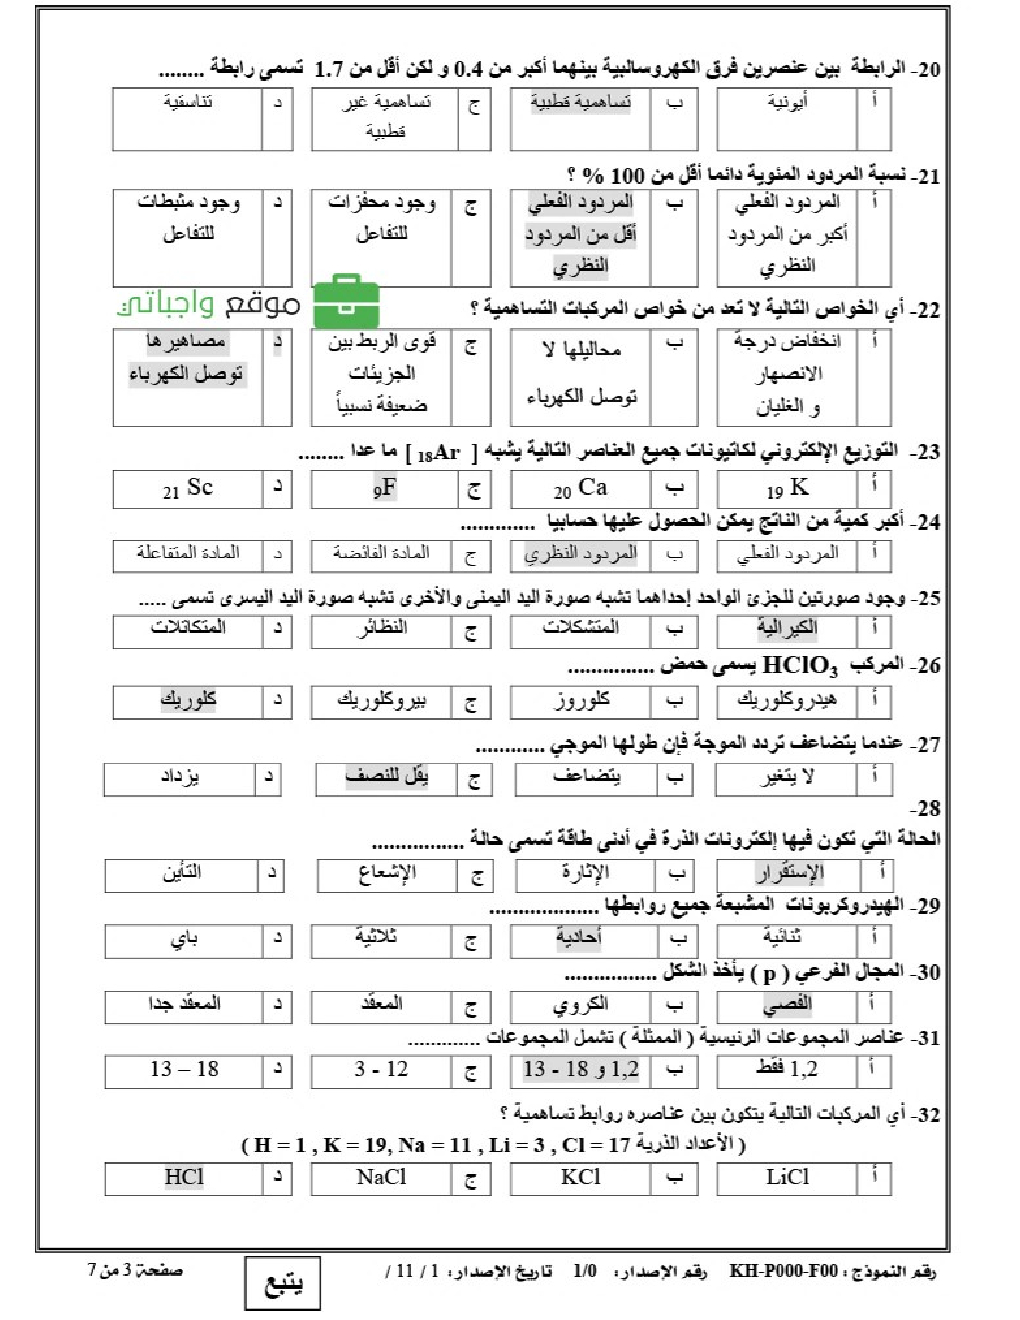 20- الرابطة بين عنصرين فرق الكهروسالبية بينهما أكبر من 0.4 و لكن أقل من 1.7 تسمى رابطة ........
أ أيونية ب تساهمية قطبية ج تساهمية غير قطبية د تناسقية
21- نسبة المردود المئوية دائما أقل من 100 % ؟
أ المردود الفعلي أكبر من المردود النظري ب المردود الفعلي أقل من المردود النظري ج وجود محفزات للتفاعل د وجود مثبطات للتفاعل
موقع واجباتي
22- أي الخواص التالية لا تعد من خواص المركبات التساهمية ؟
أ انخفاض درجة الانصهار و الغليان ب محاليلها لا توصل الكهرباء ج قوى الربط بين الجزيئات ضعيفة نسبياً د مصاهيرها توصل الكهرباء
23- التوزيع الإلكتروني لكاتيونات جميع العناصر التالية يشبه [ 18Ar ] ما عدا ........
أ 19 K ب 20 Ca ج 9F د 21 Sc
24- أكبر كمية من الناتج يمكن الحصول عليها حسابيا .............
أ المردود الفعلي ب المردود النظري ج المادة الفائضة د المادة المتفاعلة
25- وجود صورتين للجزئ الواحد إحداهما تشبه صورة اليد اليمنى والأخرى تشبه صورة اليد اليسرى تسمى .....
أ الكيرالية ب المتشكلات ج النظائر د المتكاتلات
26- المركب HClO3 يسمى حمض ...............
أ هيدروكلوريك ب كلوروز ج بيروكلوريك د كلوريك
27- عندما يتضاعف تردد الموجة فإن طولها الموجي ............
أ لا يتغير ب يتضاعف ج يقل للنصف د يزداد
28-
الحالة التي تكون فيها إلكترونات الذرة في أدنى طاقة تسمى حالة ................
أ الإستقرار ب الإثارة ج الإشعاع د التأين
29- الهيدروكربونات المشبعة جميع روابطها ...................
أ ثنائية ب أحادية ج ثلاثية د باي
30- المجال الفرعي ( p ) يأخذ الشكل ................
أ الفصي ب الكروي ج المعقد د المعقد جدا
31- عناصر المجموعات الرئيسية ( الممثلة ) تشمل المجموعات .............
أ 1,2 فقط ب 1,2 و 18 - 13 ج 3 - 12 د 13 – 18
32- أي المركبات التالية يتكون بين عناصره روابط تساهمية ؟
( الأعداد الذرية H = 1 , K = 19, Na = 11 , Li = 3 , Cl = 17 )
أ LiCl ب KCl ج NaCl د HCl
رقم النموذج : KH-P000-F00 رقم الإصدار: 1/0 تاريخ الإصدار: 1 / 11 / صفحة 3 من 7
يتبع